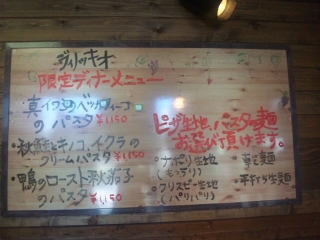 限定ディナーメニュー
真イワシのベッカフィーコ
のパスタ ¥1150
・秋鮭とキノコ、イクラの
クリームパスタ ¥1150
・鴨のロースト秋茄子
のパスタ ¥1150
ピザ生地、パスタの麺
お選び頂けます。
・ナポリ生地
(もっちり)
・クリスピー生地
(パリパリ)
・乾麺
・平打ち生麺